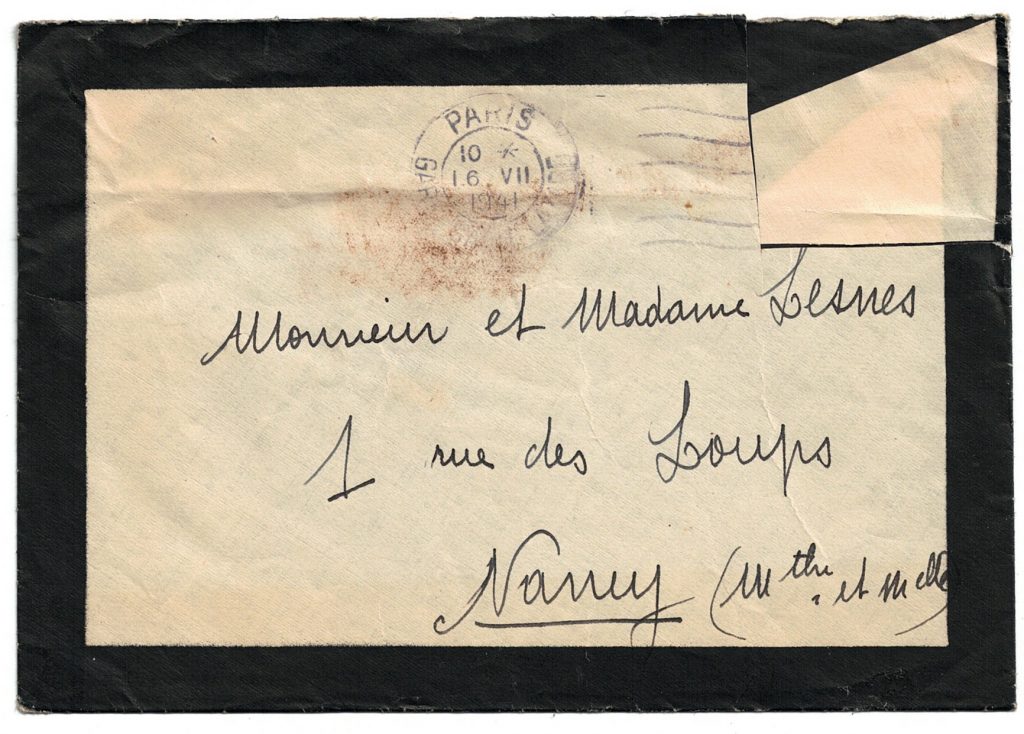 PARIS
GAR
10 *
16 VII
1941
Monsieur et Madame Lesnes
1 rue des Loups
Nancy (Mthe et Melle)